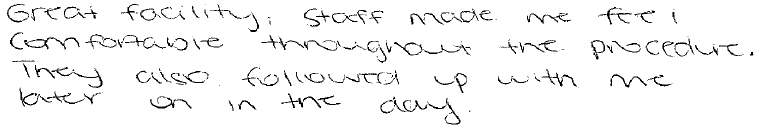 Great facility, staff made me feel
comfortable throughout the procedure.
They also followed up with me
later on in the day.